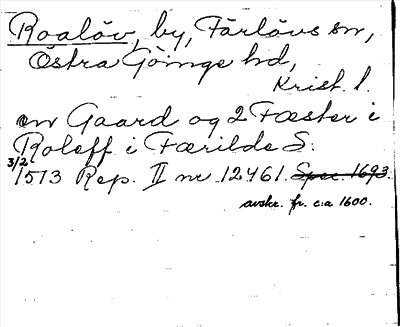 Roalöv, by, Färlövs sn,
Östra Göinge hd,
Krist. l.
en Gaard og 2 Fæster i
Roleff i Færilde S.
3/2
1573 Rep. II nr 12461. Spec. 1693.
avskr. fr. c:a 1600.